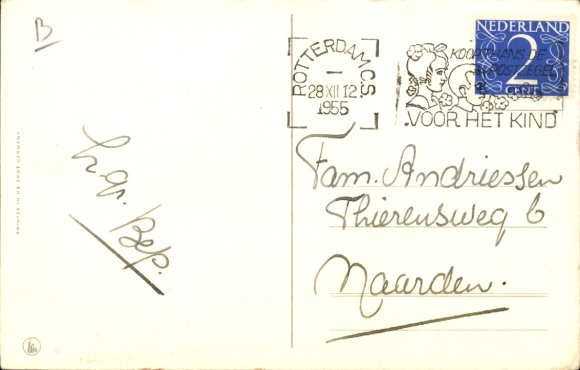 B
ROTTERDAM C.S.
I
28 XII 12
1955
KOOP THANS DE
POSTZEGEL
VOOR HET KIND
NEDERLAND
2
CENT
PRINTED IN US-ZONE GERMANY
Bep.
Fam. Andriessen
Thierensweg 6
Naarden.